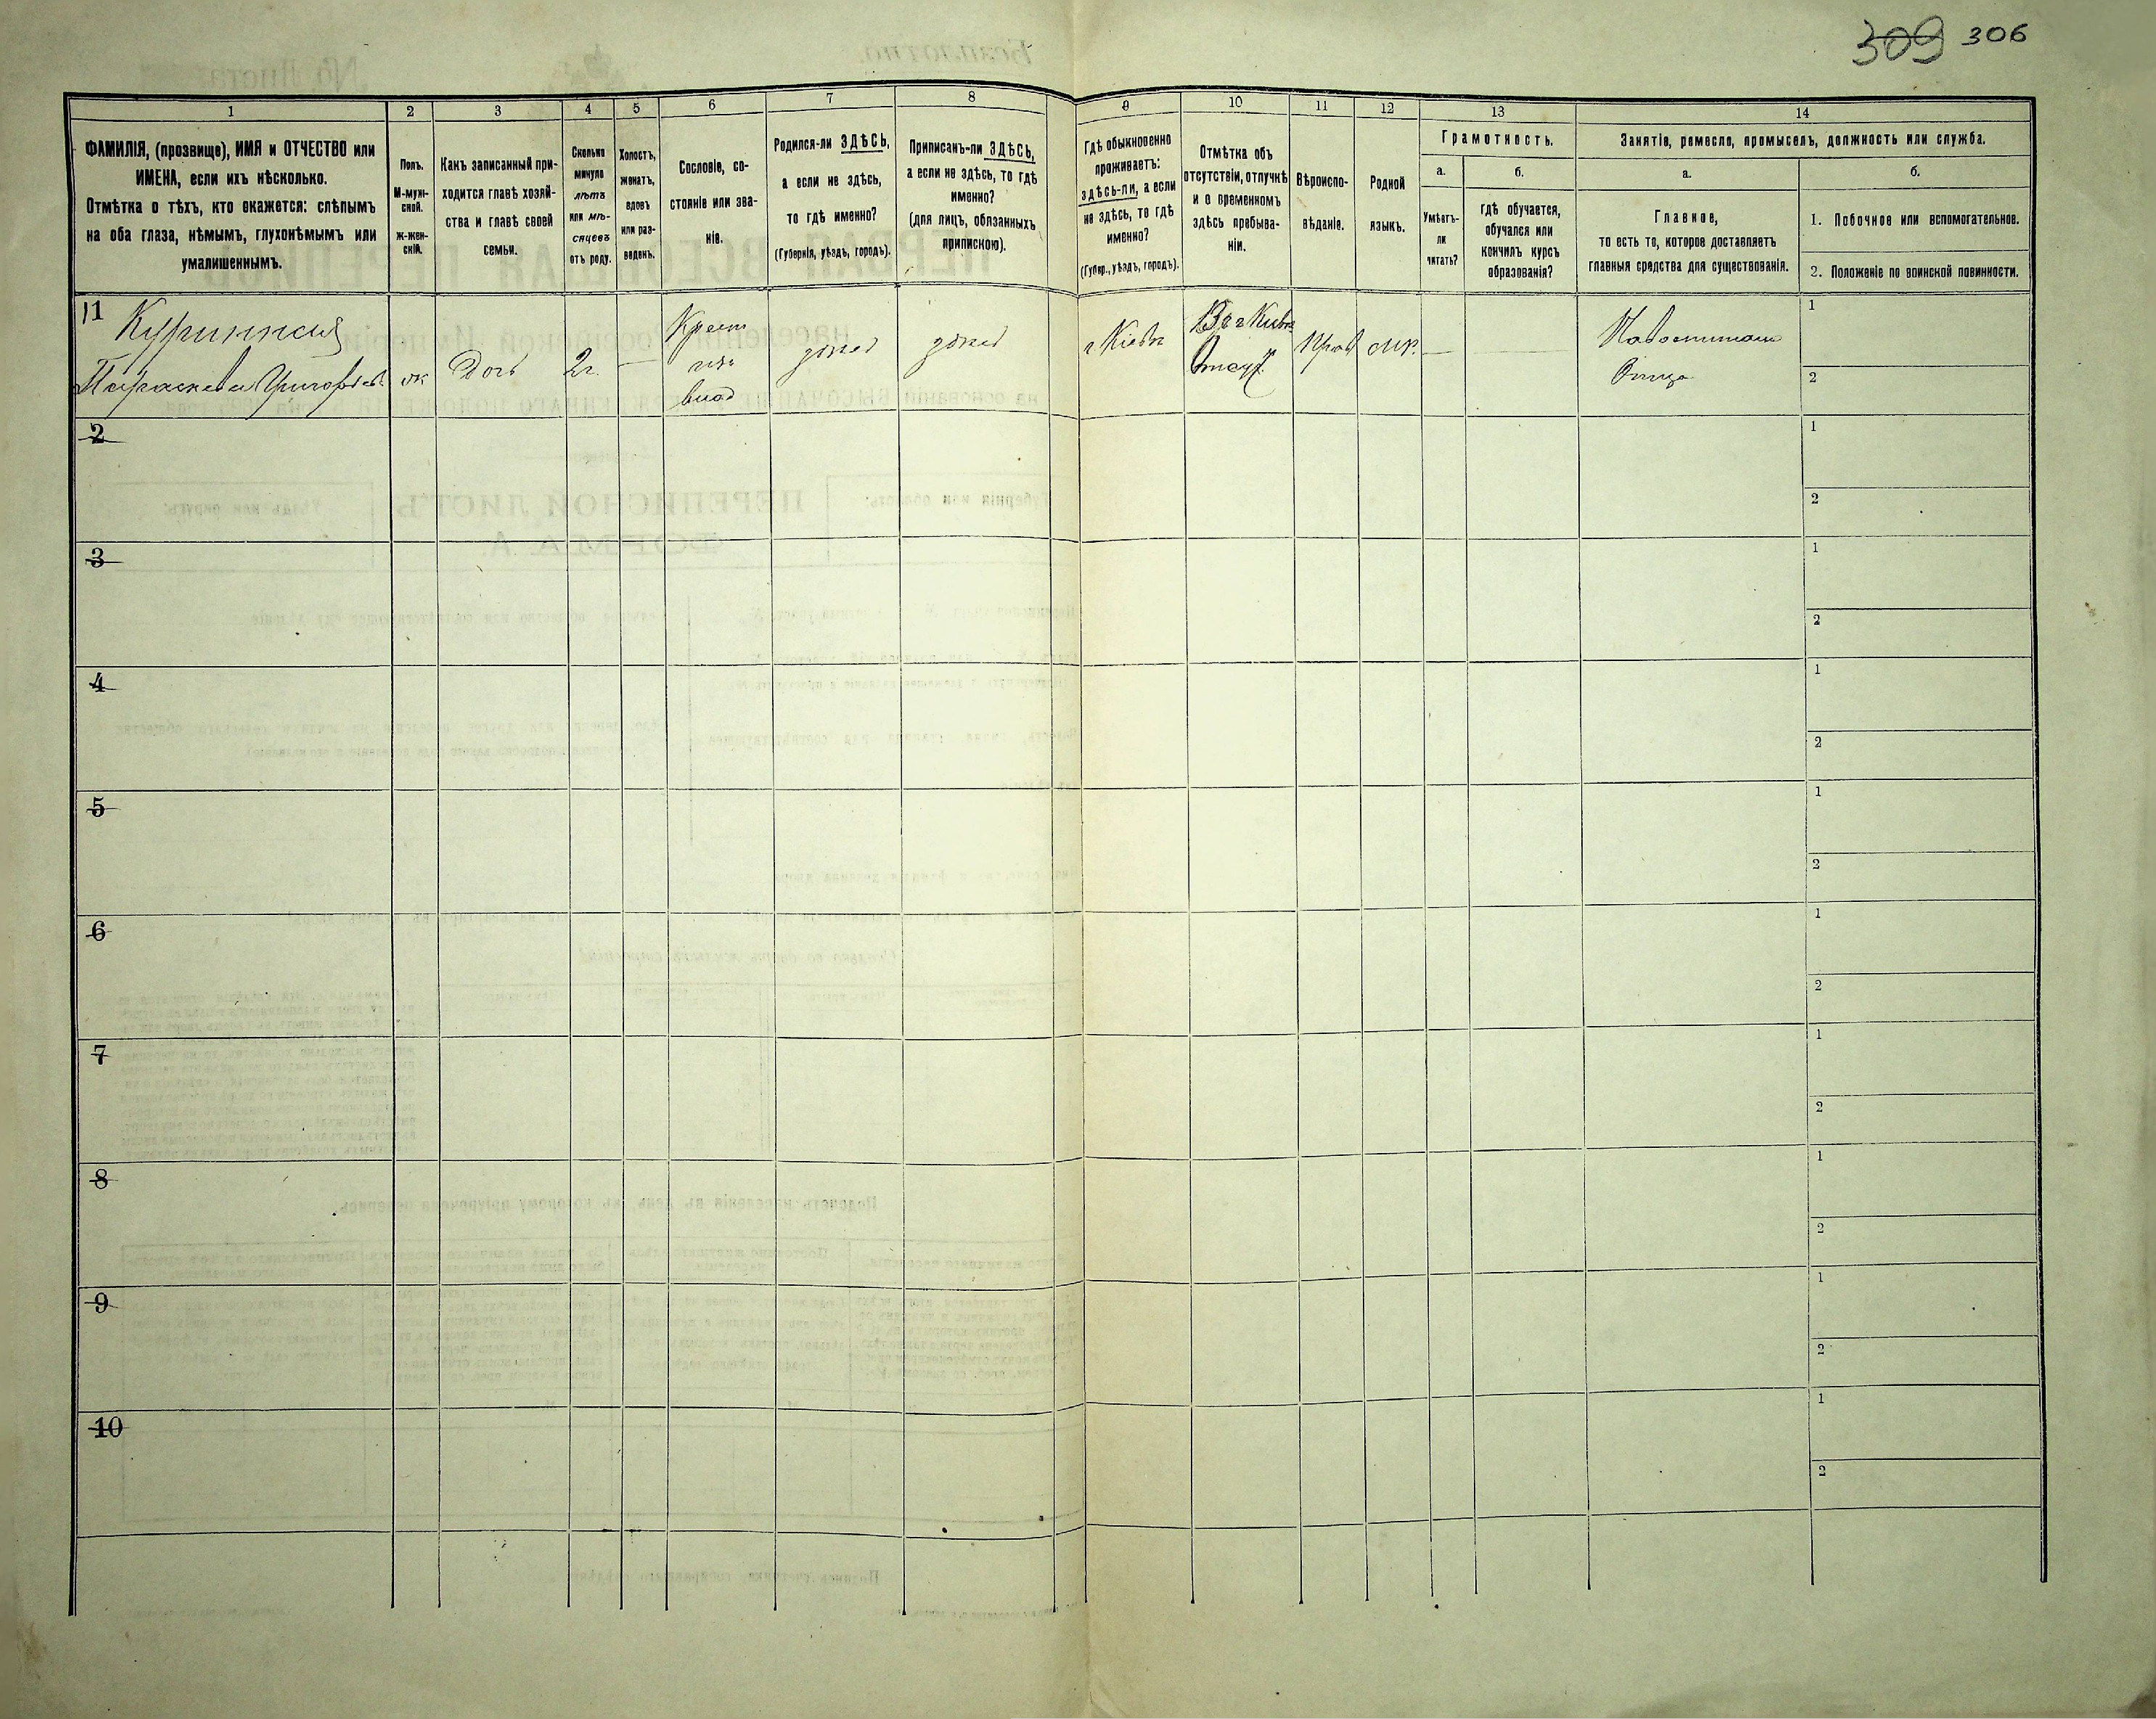 309 306
1 2 3 4 5 6 7 8 9 10 11 12 13 14
ФАМИЛІЯ, (прозвище), ИМЯ и ОТЧЕСТВО или
ИМЕНА, если ихъ нѣсколько.
Отмѣтка о тѣхъ, кто окажется: слѣпымъ
на оба глаза, нѣмымъ, глухонѣмымъ или
умалишеннымъ.
Полъ.
М-муж-
ской.
Ж-жен-
скій.
Какъ записанный при-
ходится главѣ хозяй-
ства и главѣ своей
семьи.
Сколько
минуло
лѣтъ
или мѣ-
сяцевъ
отъ роду.
Холостъ,
женатъ,
вдовъ
или раз-
веденъ.
Сословіе, со-
стояніе или зва-
ніе.
Родился-ли ЗДѢСЬ,
а если не здѣсь,
то гдѣ именно?
(Губернія, уѣздъ, городъ).
Приписанъ-ли ЗДѢСЬ,
а если не здѣсь, то гдѣ
именно?
(для лицъ, обязанныхъ
припискою).
Гдѣ обыкновенно
проживаетъ:
здѣсь-ли, а если
не здѣсь, то гдѣ
именно?
(Губер., уѣздъ, городъ).
Отмѣтка объ
отсутствіи, отлучкѣ
и о временномъ
здѣсь пребыва-
ніи.
Вѣроиспо-
вѣданіе.
Родной
языкъ.
Грамотность.
а.
Умѣетъ-
ли
читать?
б.
гдѣ обучается,
обучался или
кончилъ курсъ
образованія?
Занятіе, ремесло, промыселъ, должность или служба.
а.
Главное,
то есть то, которое доставляетъ
главныя средства для существованія.
б.
1. Побочное или вспомогательное.
2. Положеніе по воинской повинности.
11
Параскева Григорьев.
ж
Дочь
2 г.
—
Крест
изъ
влад
здѣсь
здѣсь
г Кіевъ
Въ г Кіевѣ
Отсут.
Прав
мр.
—
—
Отца
1
2
2
1
2
3
1
2
4
1
2
5
1
2
6
1
2
7
1
2
8
1
2
9
1
2
10
1
2